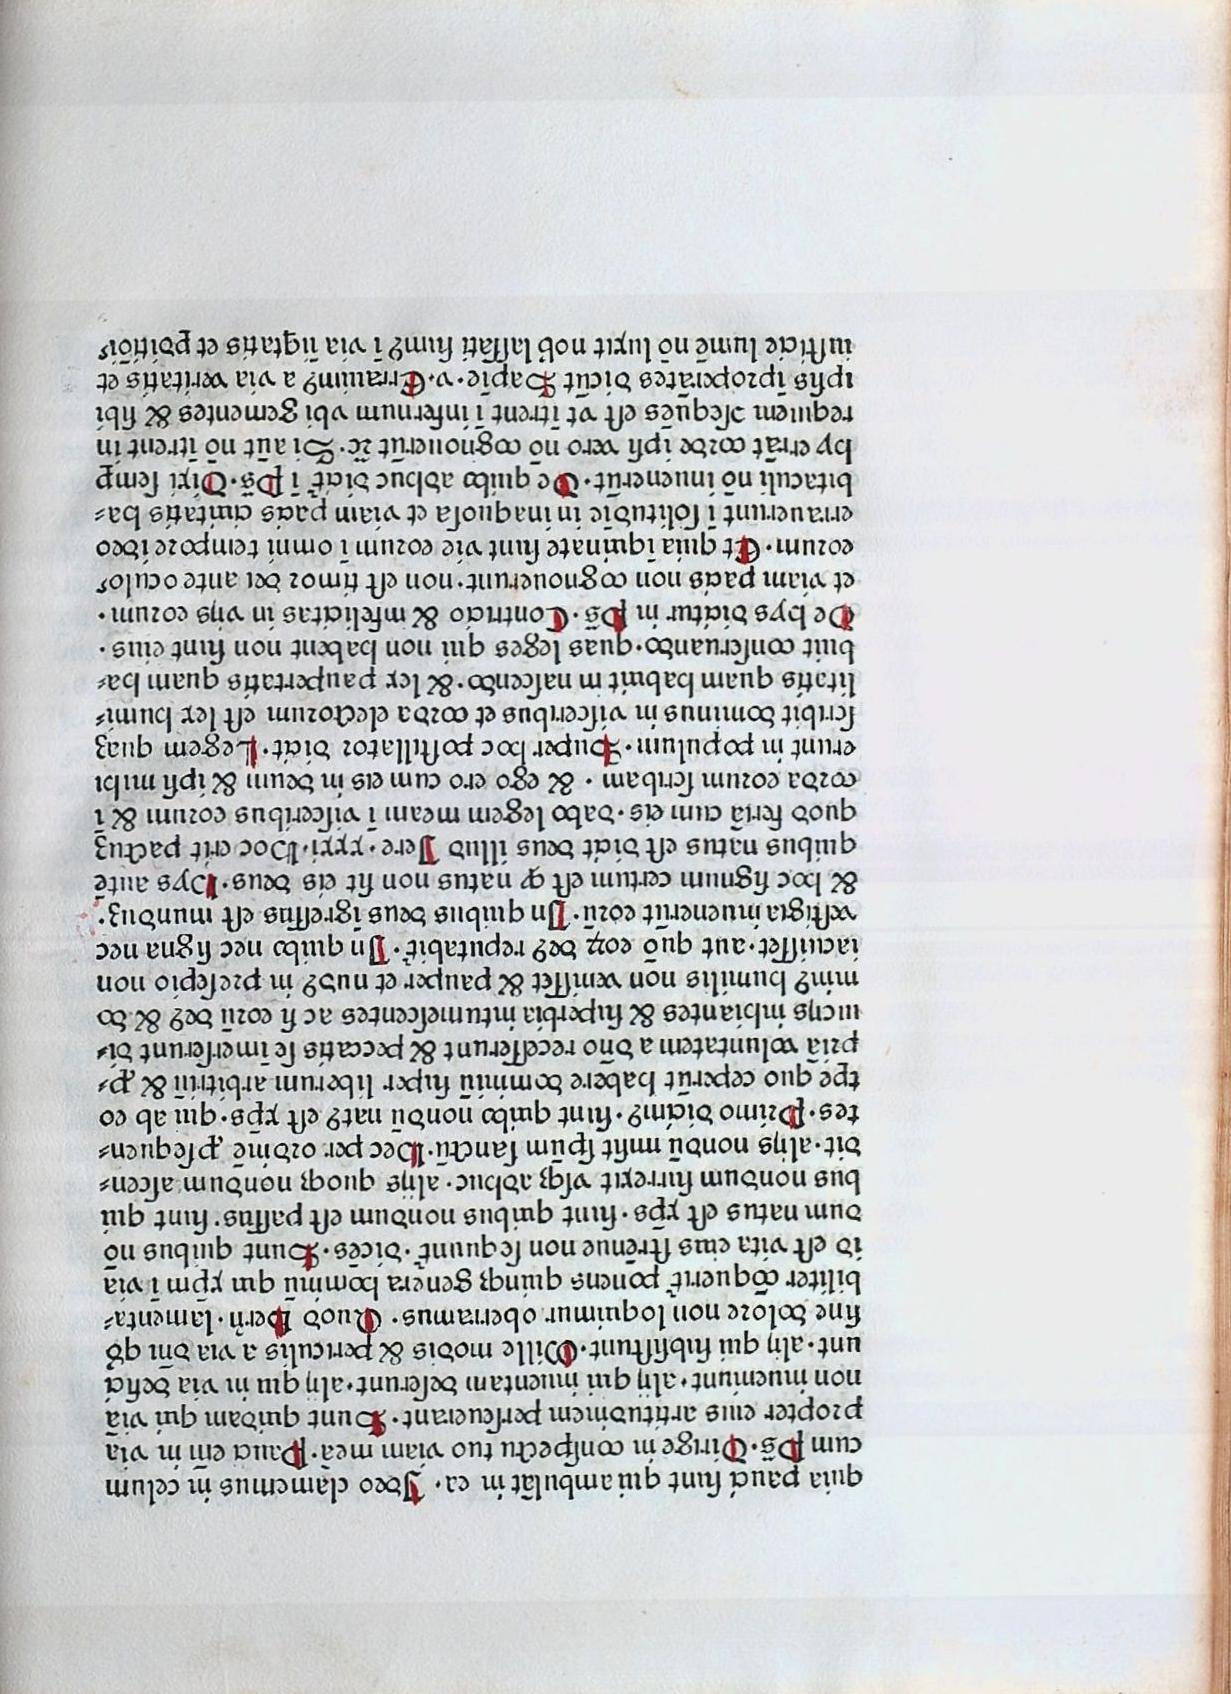 quia pauci sunt qui ambulāt in ea. Ideo clamemus in celum
cum ps̄. Dirige in conspectu tuo viam meā. Pauci em̄ in via
propter eius artitudinem perseuerant. Sunt quidam qui viā
non inueniunt. alij qui inuentam deserunt. alij qui in via defici
unt. alij qui subsistunt. Mille modis & periculis a via dn̄i qd̓
sine dolore non loquimur oberramus. Quod Bern̄. lamenta⸗
biliter cōquerit̄ ponens quinqꝫ genera hominū qui xp̄m ī via
id est vita eius strēnue non sequunt̄. dicēs. Sunt quibus nō
dum natus est xp̄s. sunt quibus nondum est passus. sunt qui
bus nondum surrexit vsqꝫ adhuc. alijs quoqꝫ nondum ascen⸗
dit. alijs nondū misit sp̄um sanctū. Hec per ordinē ꝓsequen⸗
tes. Primo dicam⁹. sunt quibꝰ nondū nat⁹ est xp̄s. qui ab eo
tp̄e quo ceperūt habere dominiū super liberum arbitriū & ꝓ⸗
priā voluntatem a dn̄o recesserunt & peccatis se īmerserunt di⸗
uicijs inhiantes & superbia intumescentes ac si eorū de⁹ & do
min⁹ humilis non venisset & pauper et nud⁹ in presepio non
iacuisset. aut quō eoꝝ de⁹ reputabit̄. In quibꝰ nec signa nec
vestigia inuenerūt eorū. In quibus deus īgressus est mundū.
& hoc signum certum est ꝙ natus non sit eis deus. Hys autē
quibus natus est dicit deus illud Iere. xxxi. Hoc erit pactuꝫ
quod feriā cum eis. dabo legem meam ī visceribus eorum & ī
corda eorum scribam. & ego ero cum eis in deum & ipsi mihi
erunt in populum. Super hoc postillator dicit. Legem quaꝫ
scribit dominus in visceribus et corda electorum est lex humi⸗
litatis quam habuit in nascendo. & lex paupertatis quam ha⸗
buit conseruando. quas leges qui non habent non sunt eius.
De hys dicitur in ps̄. Contricio & infelicitas in vijs eorum.
et viam pacis non cognouerunt. non est timor dei ante oculos
eorum. Et quia īquinate sunt vie eorum ī omni tempore ideo
errauerunt ī solitudīe in inaquosa et viam pacis ciuitatis ha⸗
bitaculi nō inuenerūt. De quibꝰ adhuc dicit̄ ī ps̄. Dixi semꝑ
hy errāt corde ipsi vero nō cognouerūt ꝛc̄. Si aūt nō ītrent in
requiem ɔseqūes est vt ītrent ī infernum vbi gementes & sibi
ipsis īproperātes dicūt Sapīe. v. Errauim⁹ a via veritatis et
iusticie lumē nō luxit nob̄ lassati sum⁹ ī via iīqtatis et pditiōis